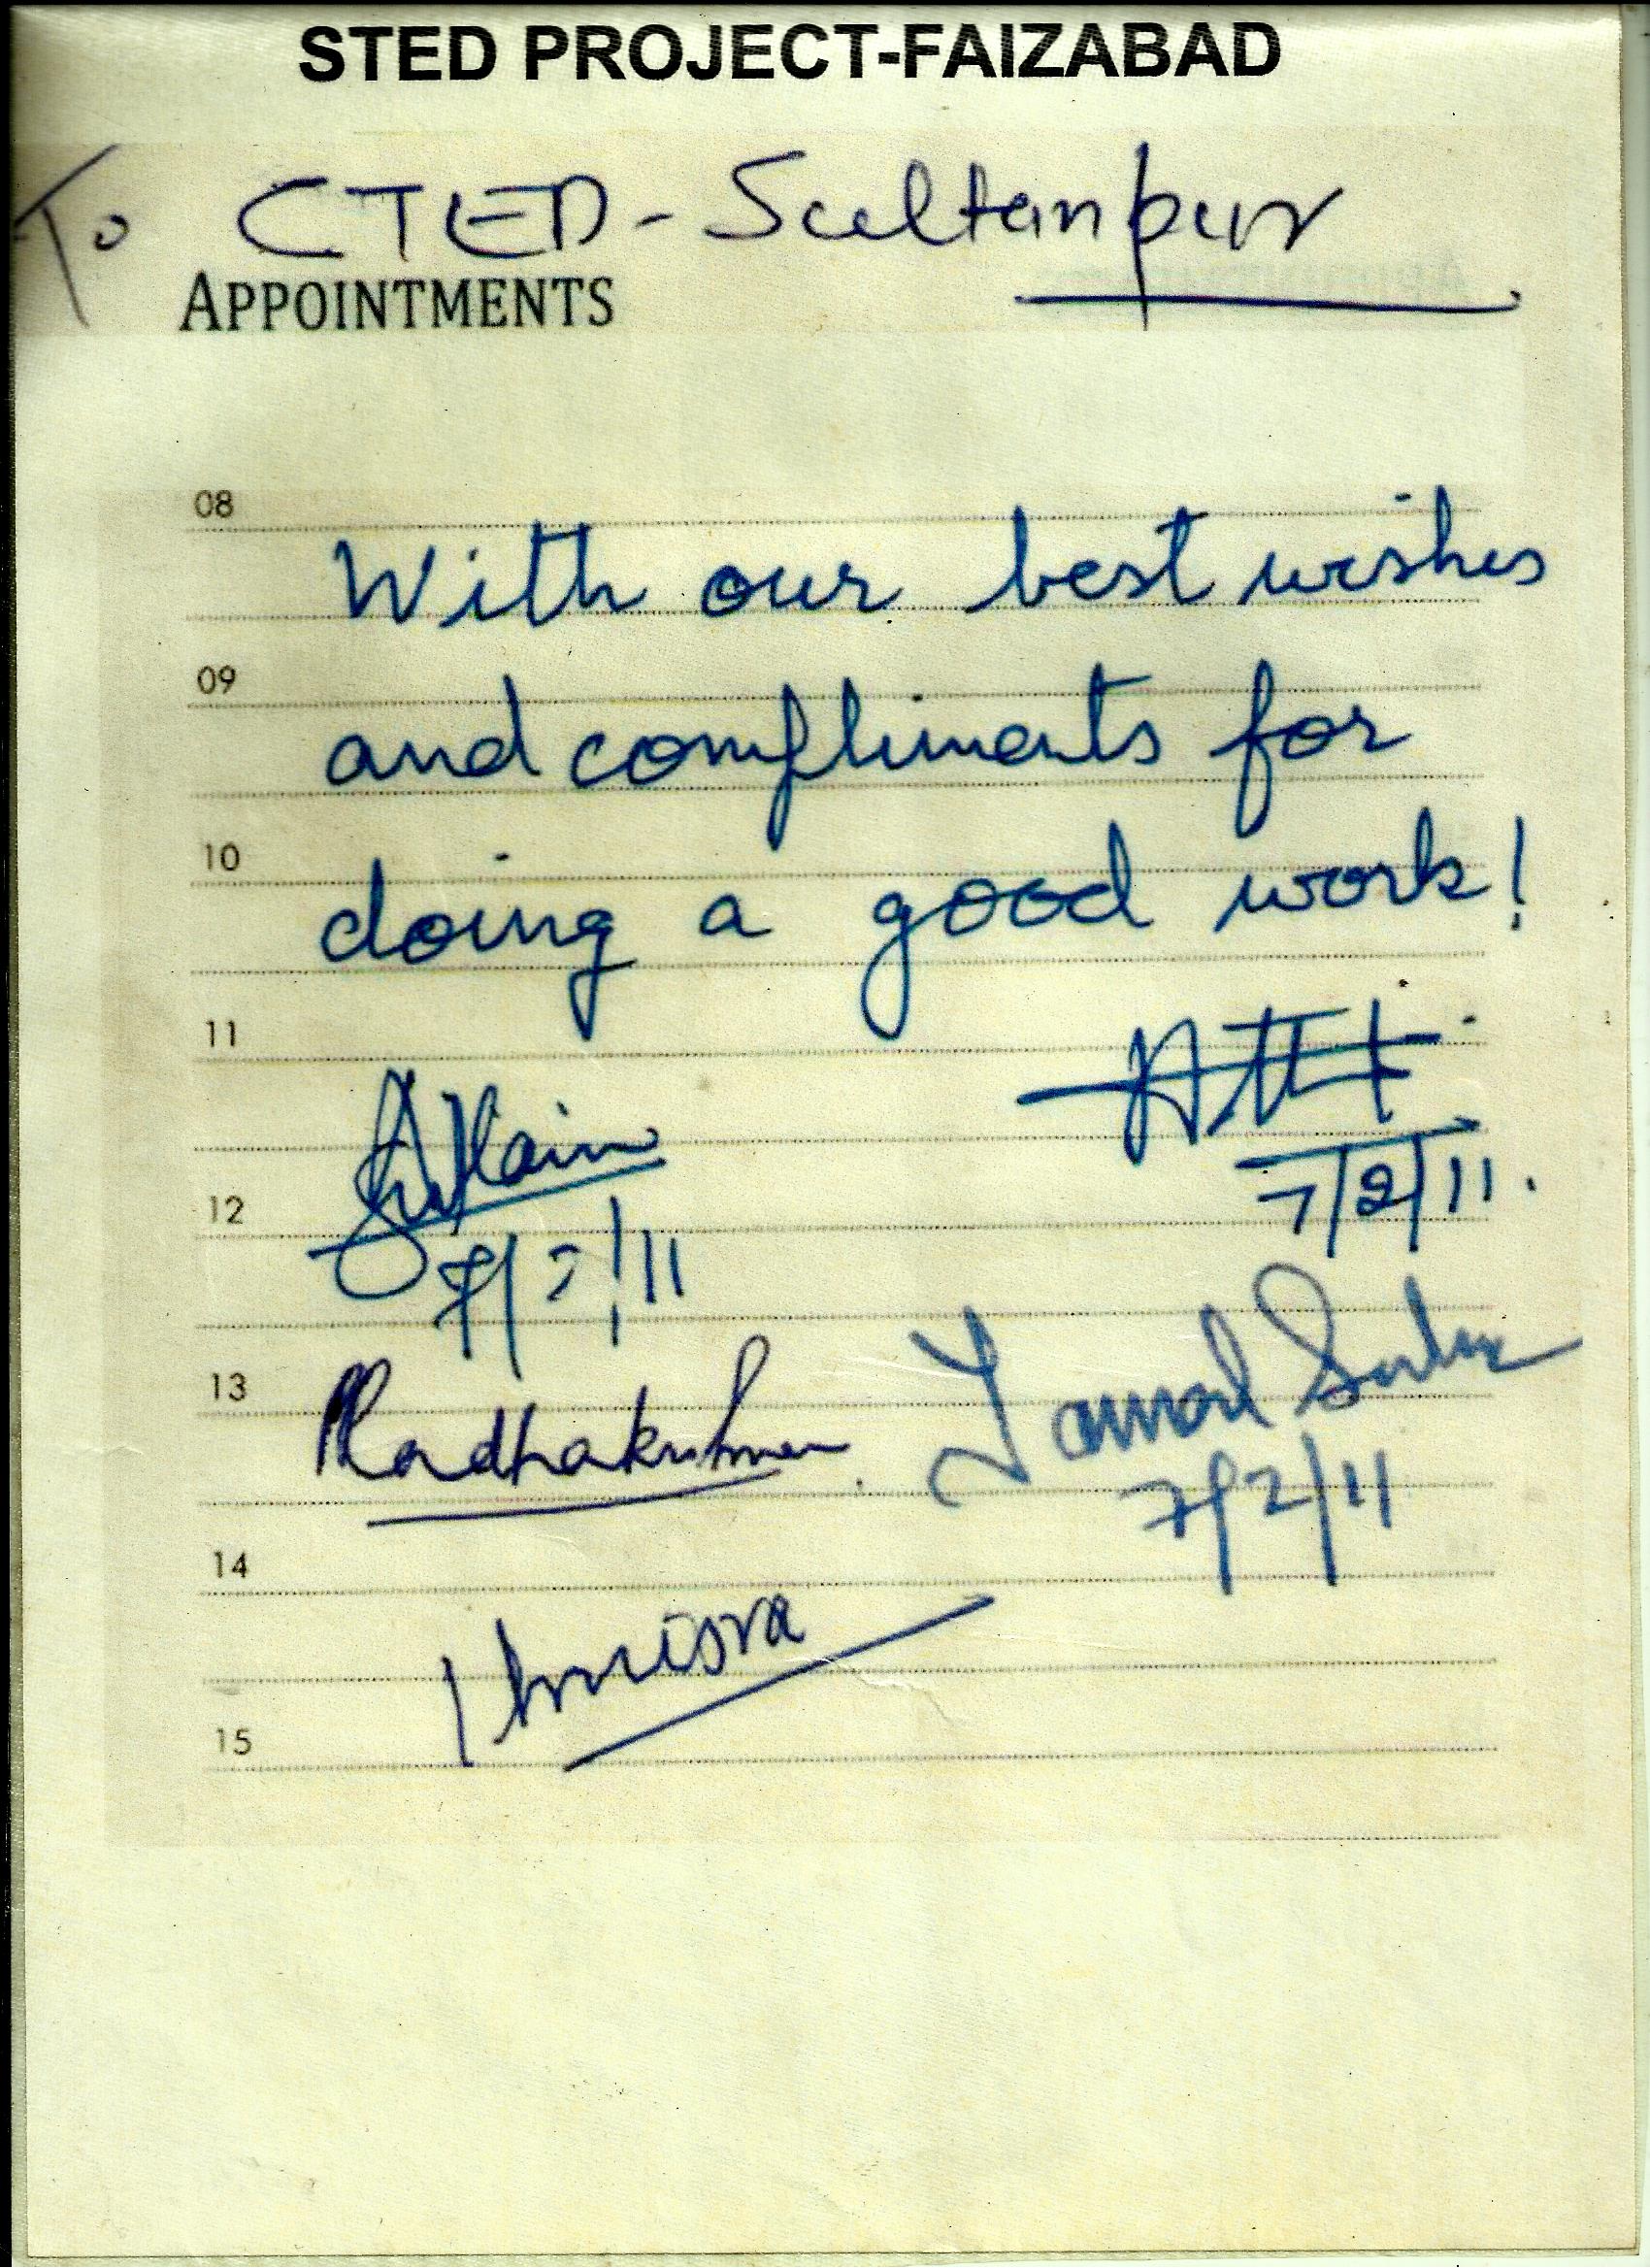 STED PROJECT-FAIZABAD
To CTED - Sultanpur
APPOINTMENTS
08
With our best wishes
09
and compliments for
10
doing a good work!
11
12
7/2/11.
7/2/11
13
Radhakrishnan
7/2/11
14
misra
15